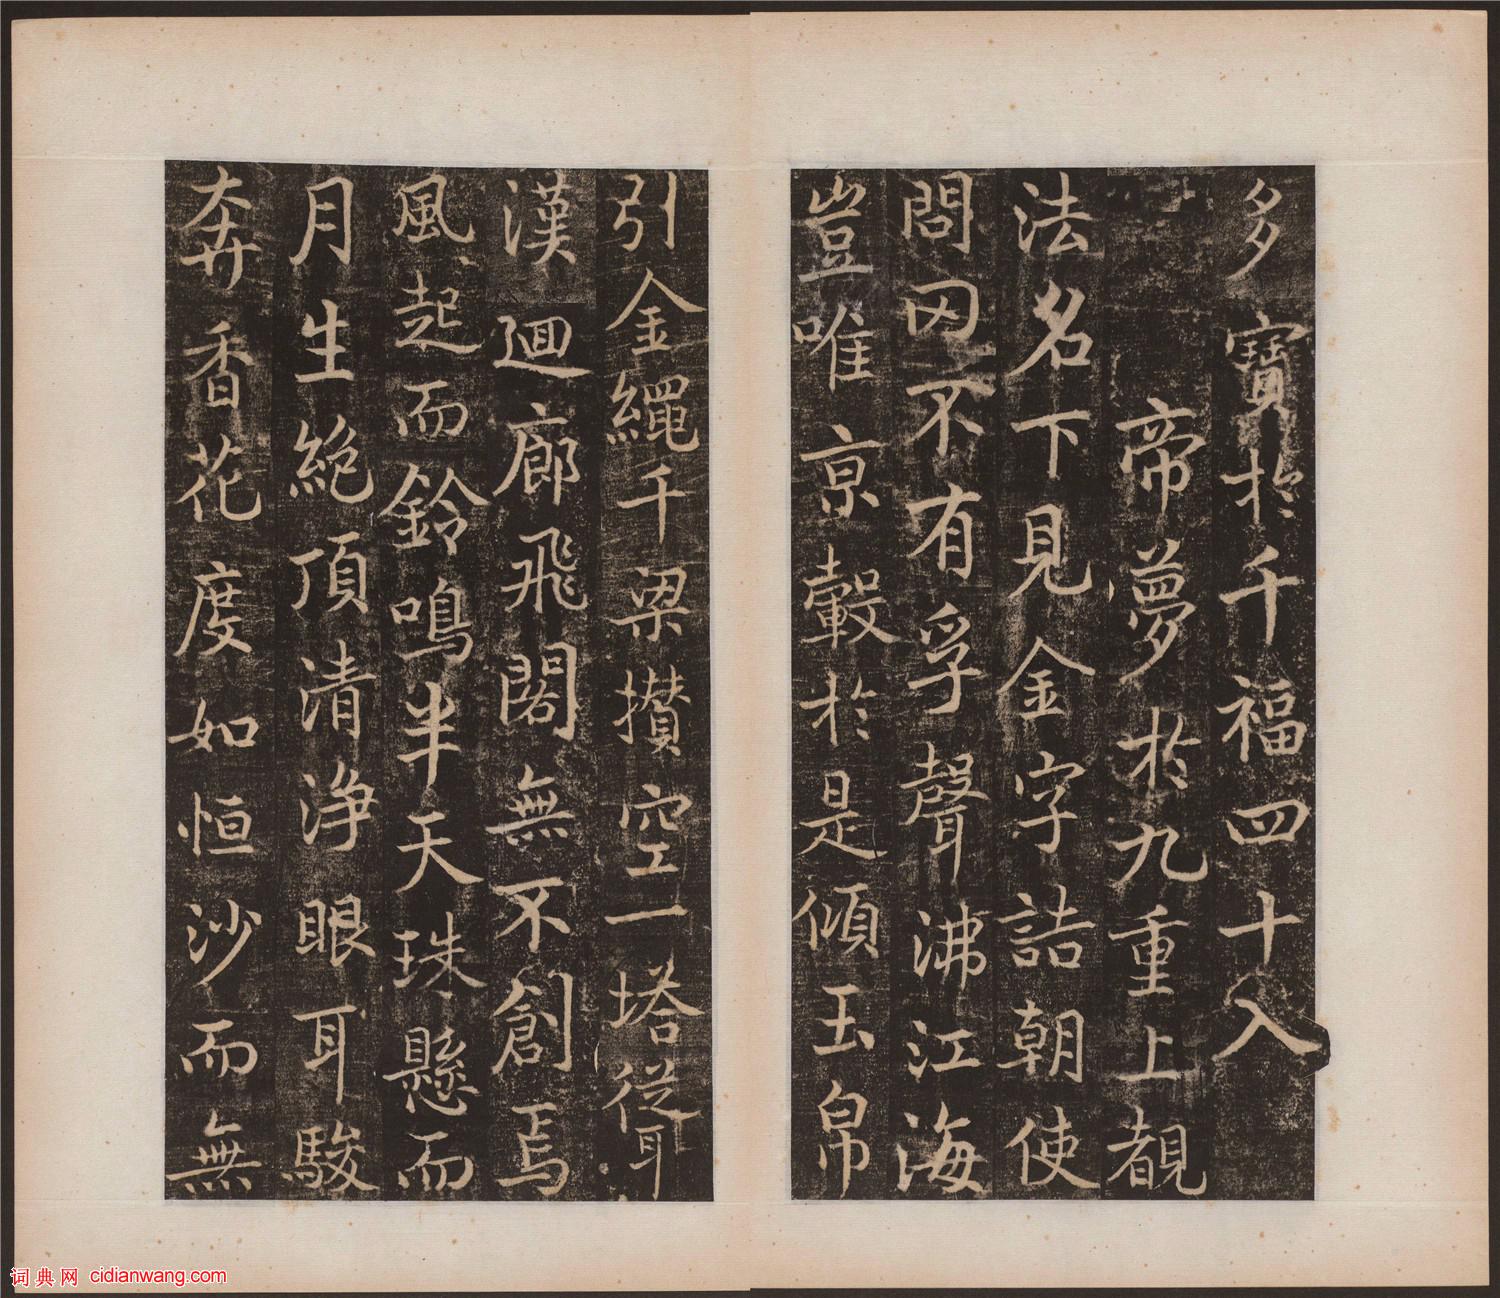 多寶於千福四十入
帝夢於九重上覩
法名下見金字詰朝使
問罔不有孚聲沸江海
豈唯京轂於是傾玉帛
引金繩千梁攢空一塔從耳
漢迴廊飛閣無不創焉
風起而鈴鳴半天珠懸而
月生絕頂清淨眼耳駿
奔香花度如恒沙而無
词典网 cidianwang.com